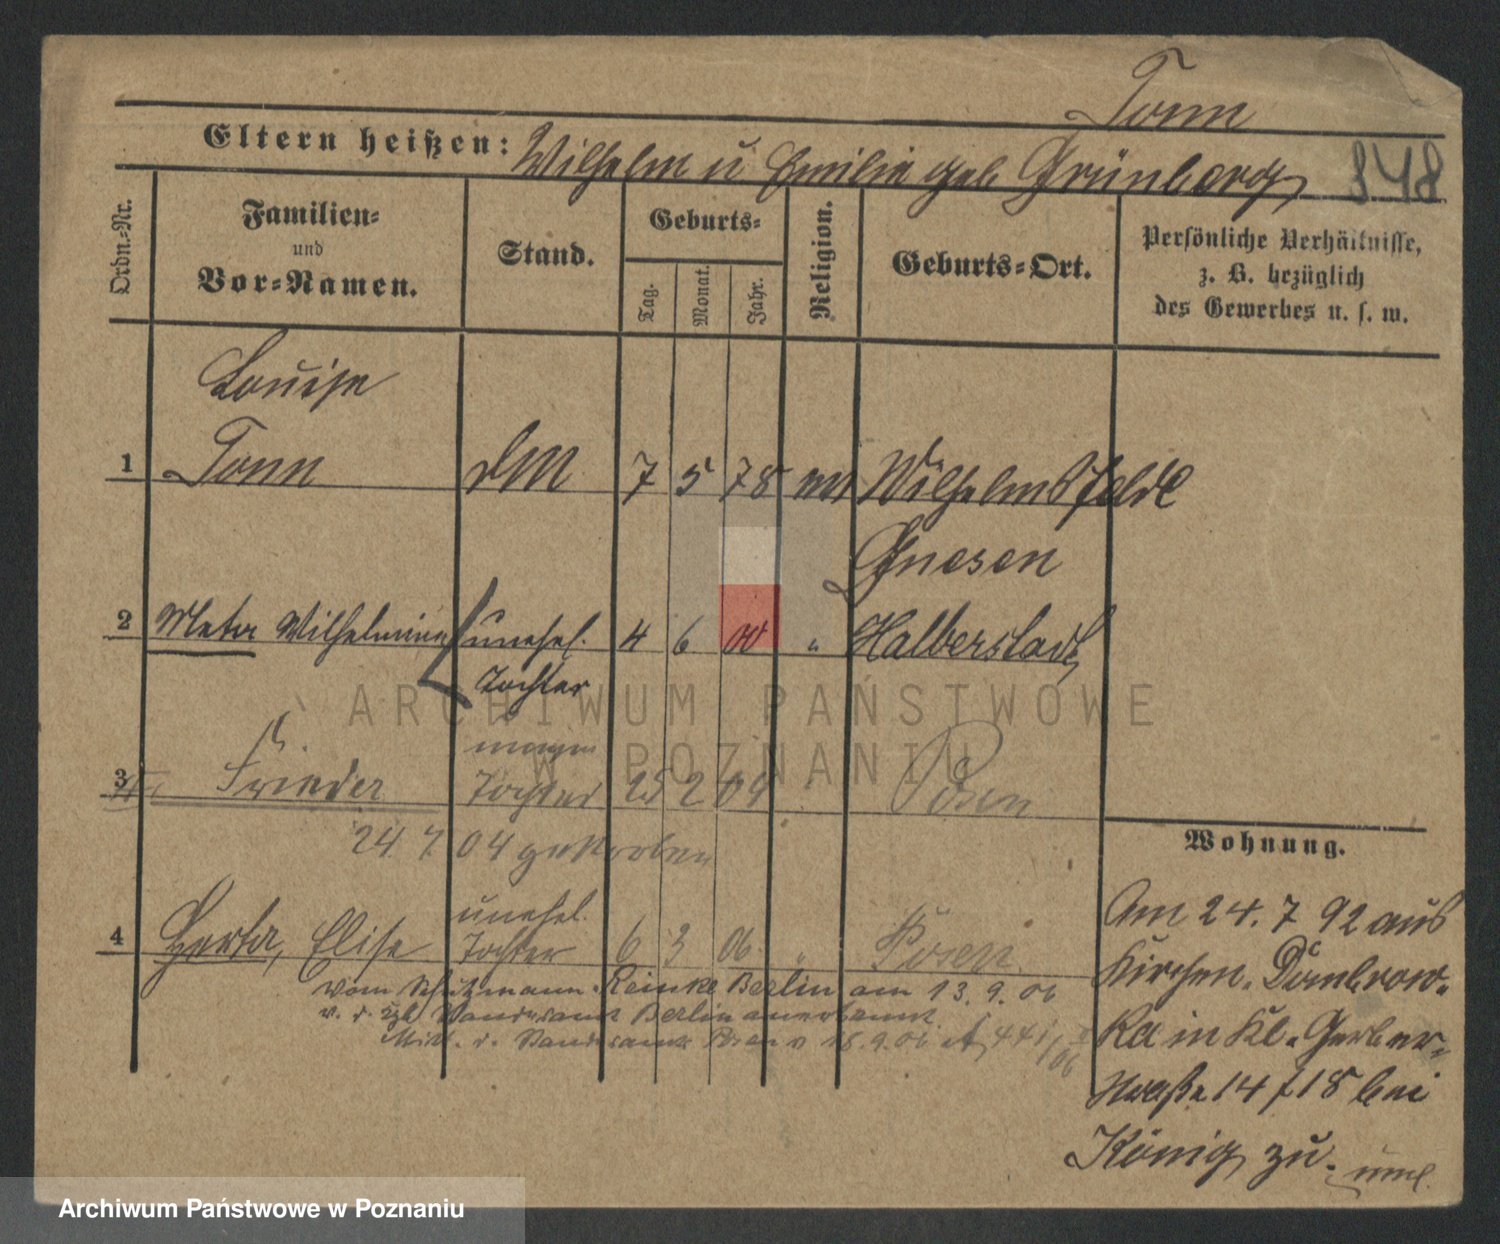 Tonn
Eltern heißen: Wilhelm u Emilie geb Grünberg 848
Ordn.-Nr.
Familien-
und
Vor-Namen.
Stand.
Geburts-
Tag.
Monat.
Jahr.
Religion.
Geburts-Ort.
Persönliche Verhältnisse,
z. B. bezüglich
des Gewerbes u. s. w.
Louise
1 Tonn DM 7 5 78 Wilhelmsfelde
Gnesen
2 Meta Wilhelmine unehel. 4 6 00 " Halberstadt
Tochter
3 Frieda Tochter 25 2 04 " Posen
24 7 04 gestorben
unehel.
4 Herta, Elise Tochter 6 3 06 " Posen
vom Schutzmann Reinke Berlin am 13.9.06
v. d. Kgl. Standesamt Berlin anerkannt.
Mitt. d. Standesamts Posen v 18.9.06
Wohnung.
Am 24. 7 92 aus
Kirchen. Dombrow-
ka in Kl. Gerber-
straße 14 f 18 bei
König zu.
ARCHIWUM PAŃSTWOWE
W POZNANIU
Archiwum Państwowe w Poznaniu